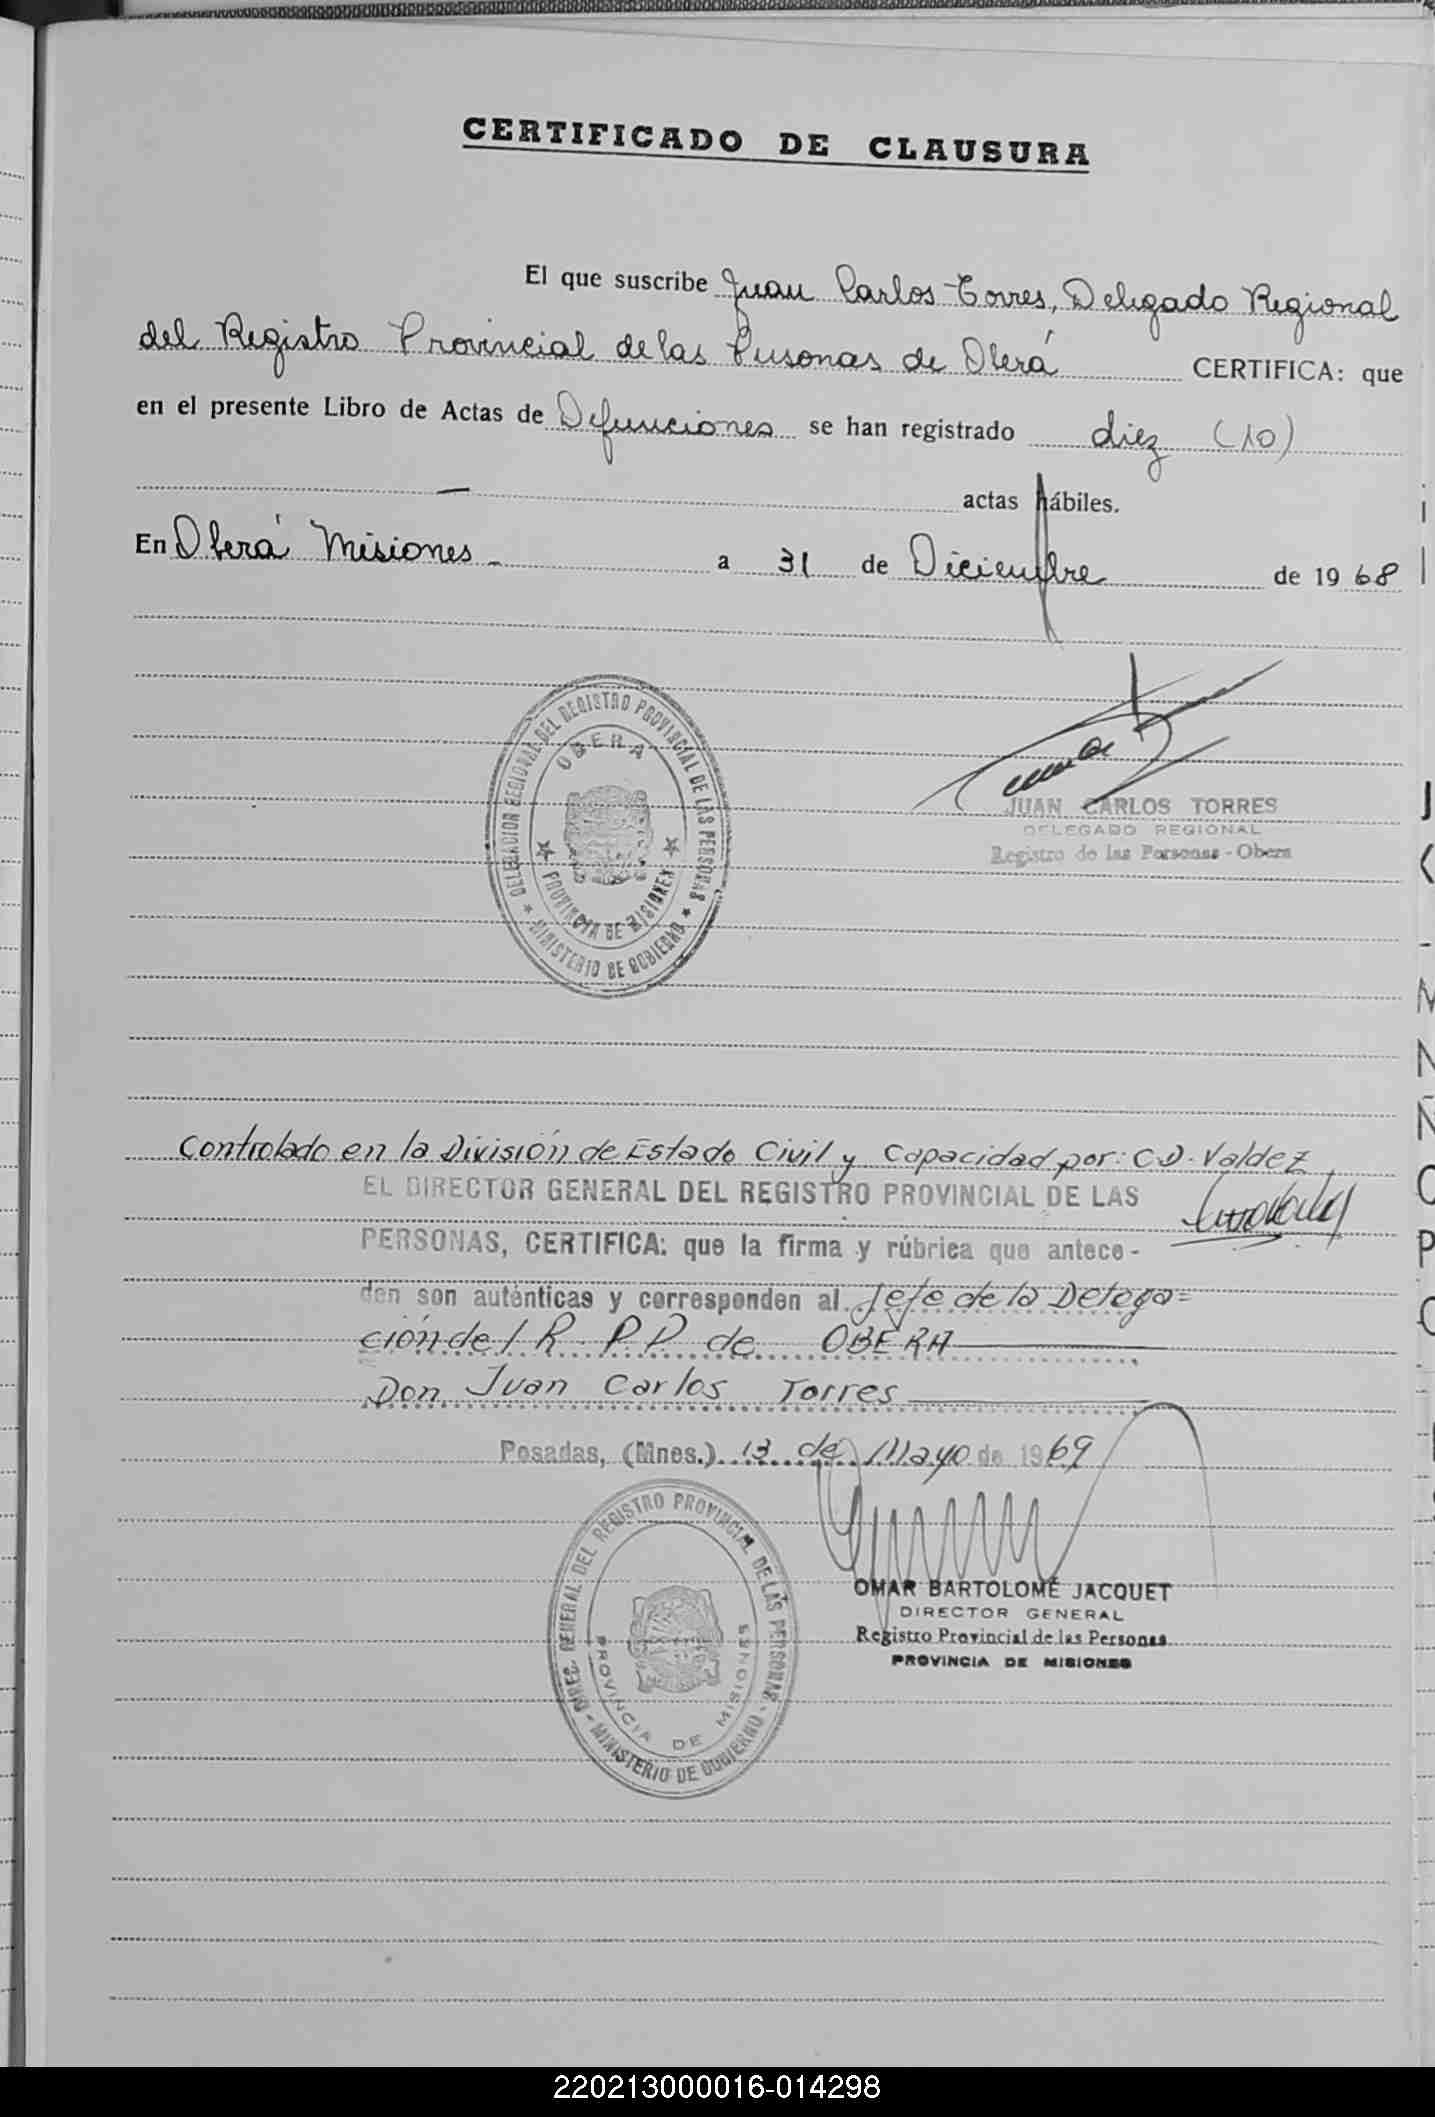 CERTIFICADO DE CLAUSURA
El que suscribe Juan Carlos Torres, Delegado Regional
del Registro Provincial de las Personas de Oberá CERTIFICA: que
en el presente Libro de Actas de Defunciones se han registrado diez (10)
— actas hábiles.
En Oberá Misiones a 31 de Diciembre de 1968
DELEGACION REGIONAL DEL REGISTRO PROVINCIAL DE LAS PERSONAS
OBERA
PROVINCIA DE MISIONES
MINISTERIO DE GOBIERNO
JUAN CARLOS TORRES
DELEGADO REGIONAL
Registro de las Personas - Obera
Controlado en la División de Estado Civil y Capacidad por: C.D. Valdez
EL DIRECTOR GENERAL DEL REGISTRO PROVINCIAL DE LAS
PERSONAS, CERTIFICA: que la firma y rúbrica que antece-
den son auténticas y corresponden al Jefe de la Delega=
ción del R. P. P. de OBERA
Don Juan Carlos Torres
Posadas, (Mnes.) 13 de Mayo de 1969
DIREC. GENERAL DEL REGISTRO PROVINCIAL DE LAS PERSONAS - MINISTERIO DE GOBIERNO -
PROVINCIA DE MISIONES
OMAR BARTOLOMÉ JACQUET
DIRECTOR GENERAL
Registro Provincial de las Personas
PROVINCIA DE MISIONES
220213000016-014298